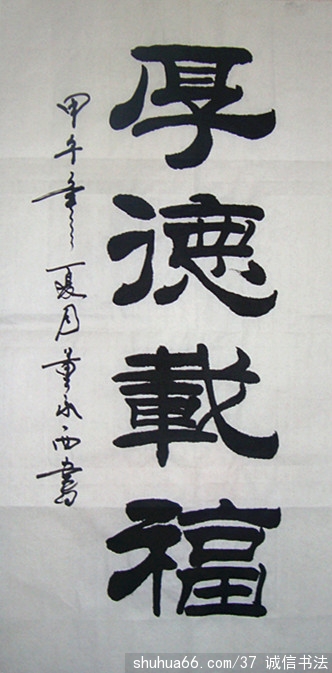 厚德載福
甲午年之夏月董永西書
shuhua66.com/37 诚信书法